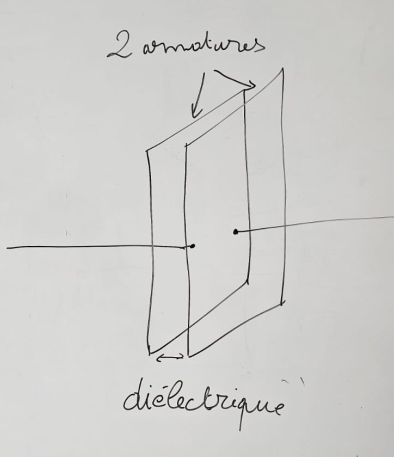 2 armatures
diélectrique